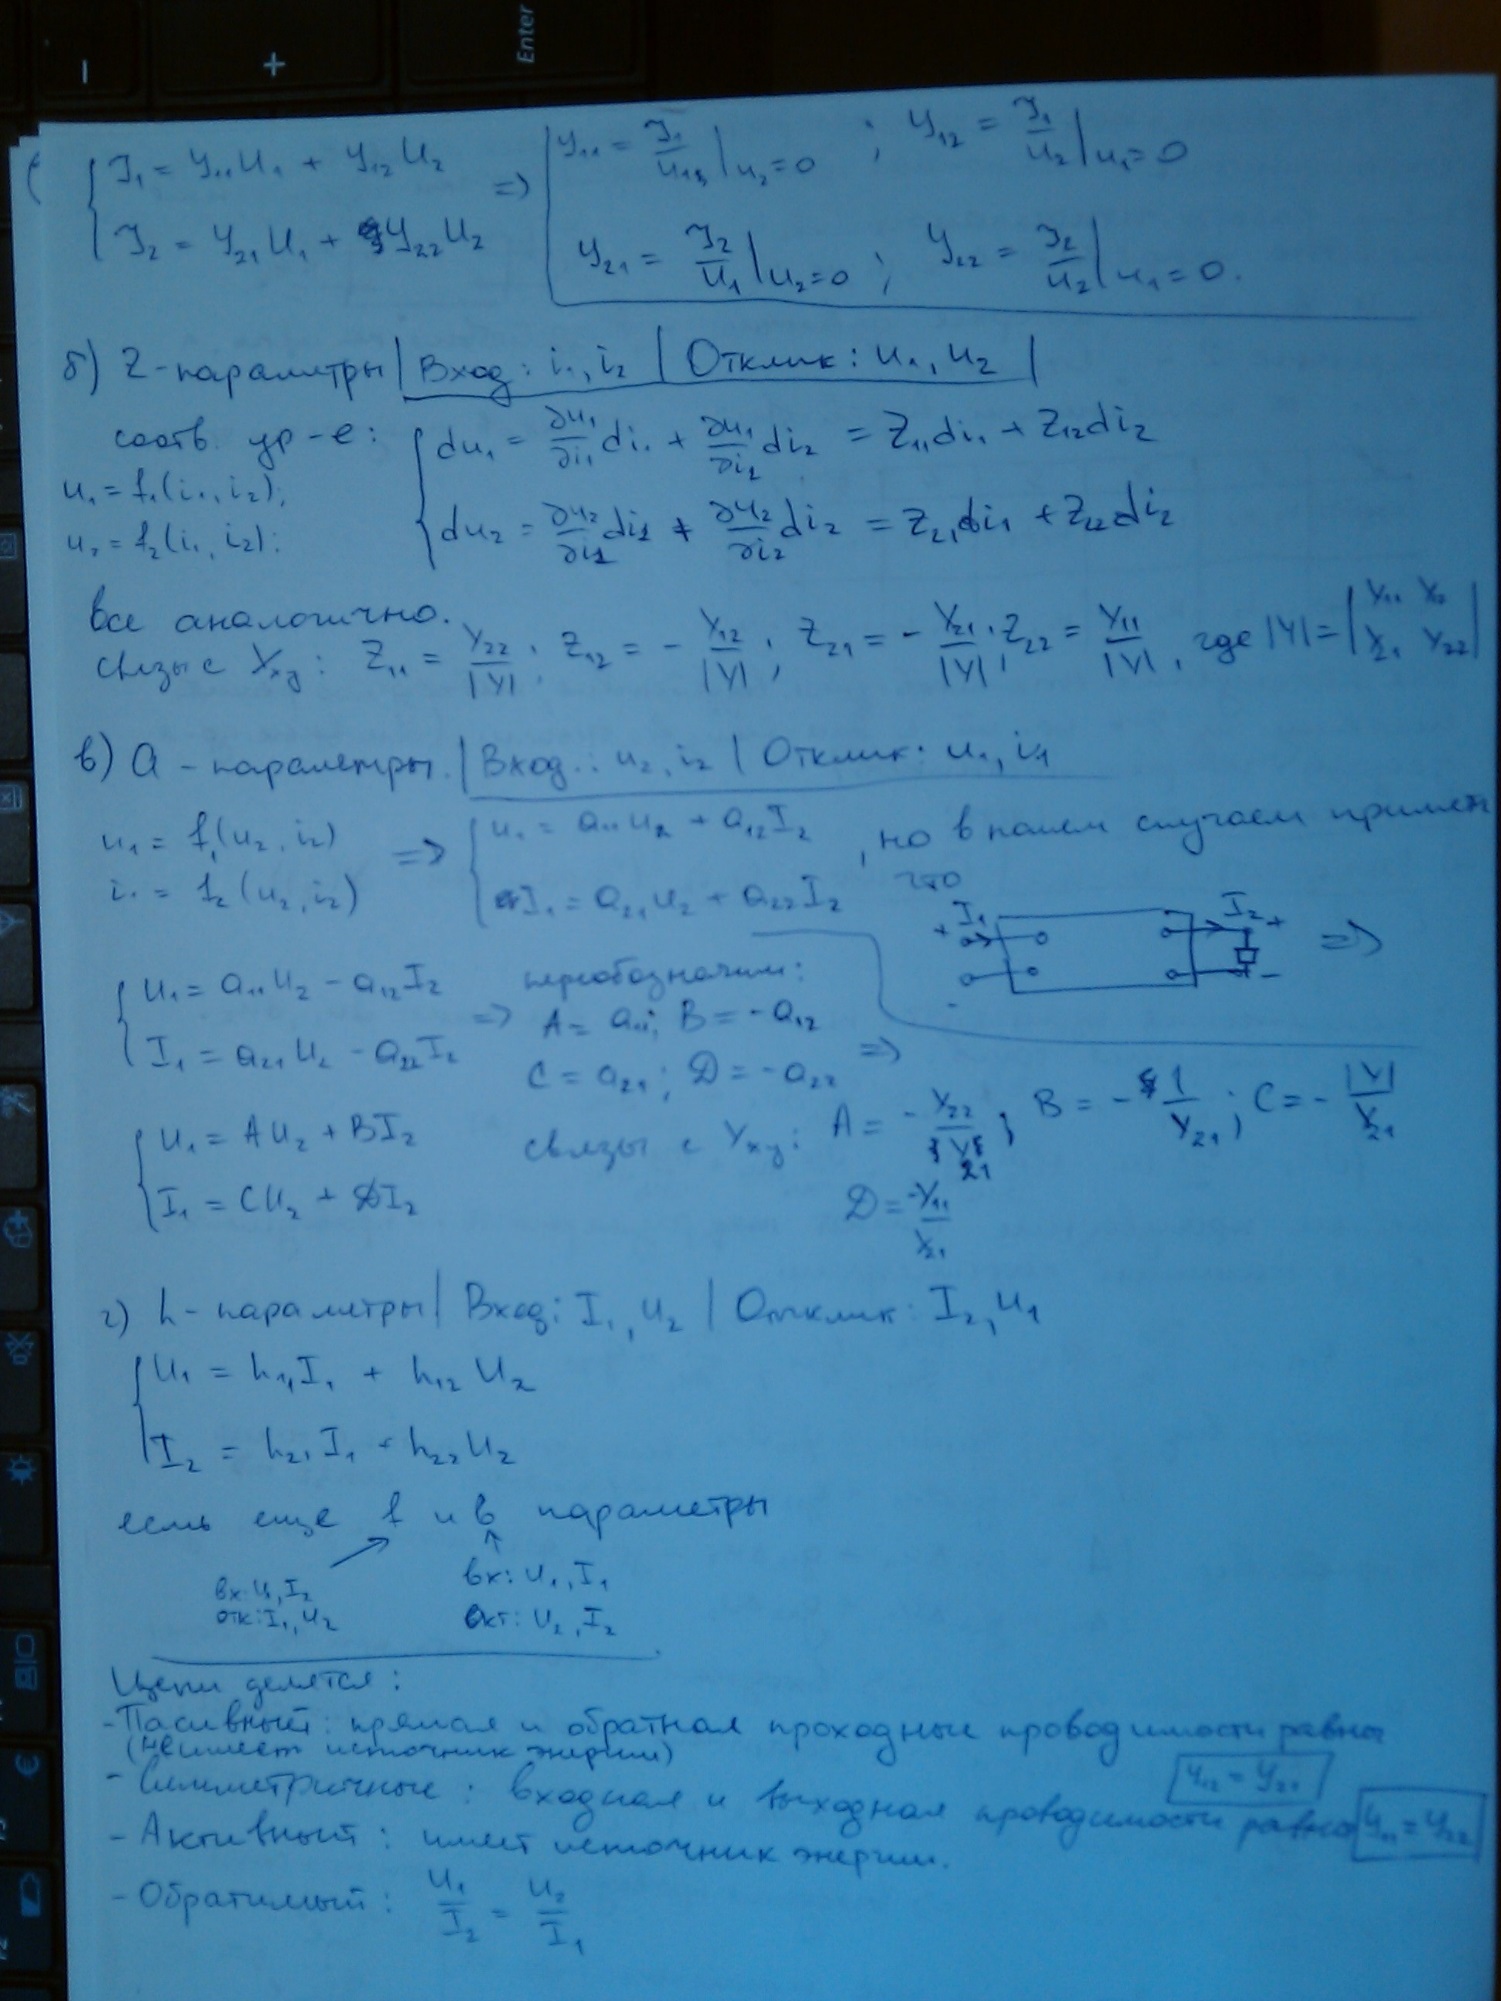 − + Enter
I₁ = Y₁₁U₁ + Y₁₂U₂ => Y₁₁ = I₁/U₁ |U₂=0 ; Y₁₂ = I₁/U₂ |U₁=0
I₂ = Y₂₁U₁ + Y₂₂U₂ Y₂₁ = I₂/U₁ |U₂=0 ; Y₂₂ = I₂/U₂ |U₁=0.
б) Z-параметры | Вход: i₁, i₂ | Отклик: u₁, u₂ |
соотв. ур-е: du₁ = ∂u₁/∂i₁ di₁ + ∂u₁/∂i₂ di₂ = Z₁₁di₁ + Z₁₂di₂
u₁ = f₁(i₁, i₂);
u₂ = f₂(i₁, i₂); du₂ = ∂u₂/∂i₁ di₁ + ∂u₂/∂i₂ di₂ = Z₂₁di₁ + Z₂₂di₂
все аналогично.
связь с Yxy: Z₁₁ = Y₂₂/|Y|; Z₁₂ = - Y₁₂/|Y|; Z₂₁ = - Y₂₁/|Y|; Z₂₂ = Y₁₁/|Y|, где |Y| = |Y₁₁ Y₁₂ Y₂₁ Y₂₂|
в) a - параметры. | Вход: u₂, i₂ | Отклик: u₁, i₁
u₁ = f₁(u₂, i₂) => u₁ = a₁₁u₂ + a₁₂I₂ , но в нашем случаем
i₁ = f₂(u₂, i₂) I₁ = a₂₁u₂ + a₂₂I₂ что
+ I₁ I₂ + - =>
U₁ = a₁₁U₂ - a₁₂I₂ => переобозначим:
I₁ = a₂₁U₂ - a₂₂I₂ A = a₁₁; B = -a₁₂
C = a₂₁; D = -a₂₂ =>
U₁ = AU₂ + BI₂ связь с Yxy: A = - Y₂₂/Y₂₁; B = - 1/Y₂₁; C = - |Y|/Y₂₁
I₁ = CU₂ + DI₂ D = -Y₁₁/Y₂₁
г) h-параметры | Вход: I₁, U₂ | Отклик: I₂, U₁
U₁ = h₁₁I₁ + h₁₂U₂
I₂ = h₂₁I₁ + h₂₂U₂
есть еще f и b параметры
вх: U₁, I₂ вх: U₁, I₁
отк: I₁, U₂ окт: U₂, I₂
Цепи делятся:
- Пасивный: прямая и обратная проходные проводимости равны
(не имеет источник энергии) Y₁₂ = Y₂₁
- Симметричные: входная и выходная проводимости равно Y₁₁ = Y₂₂
- Активный: имеет источник энергии.
- Обратимый: U₁/I₂ = U₂/I₁